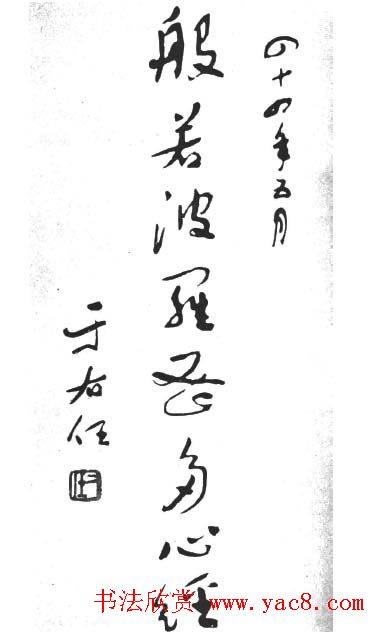 四十四年五月
般若波羅蜜多心經
于右任
书法欣赏 www.yac8.com